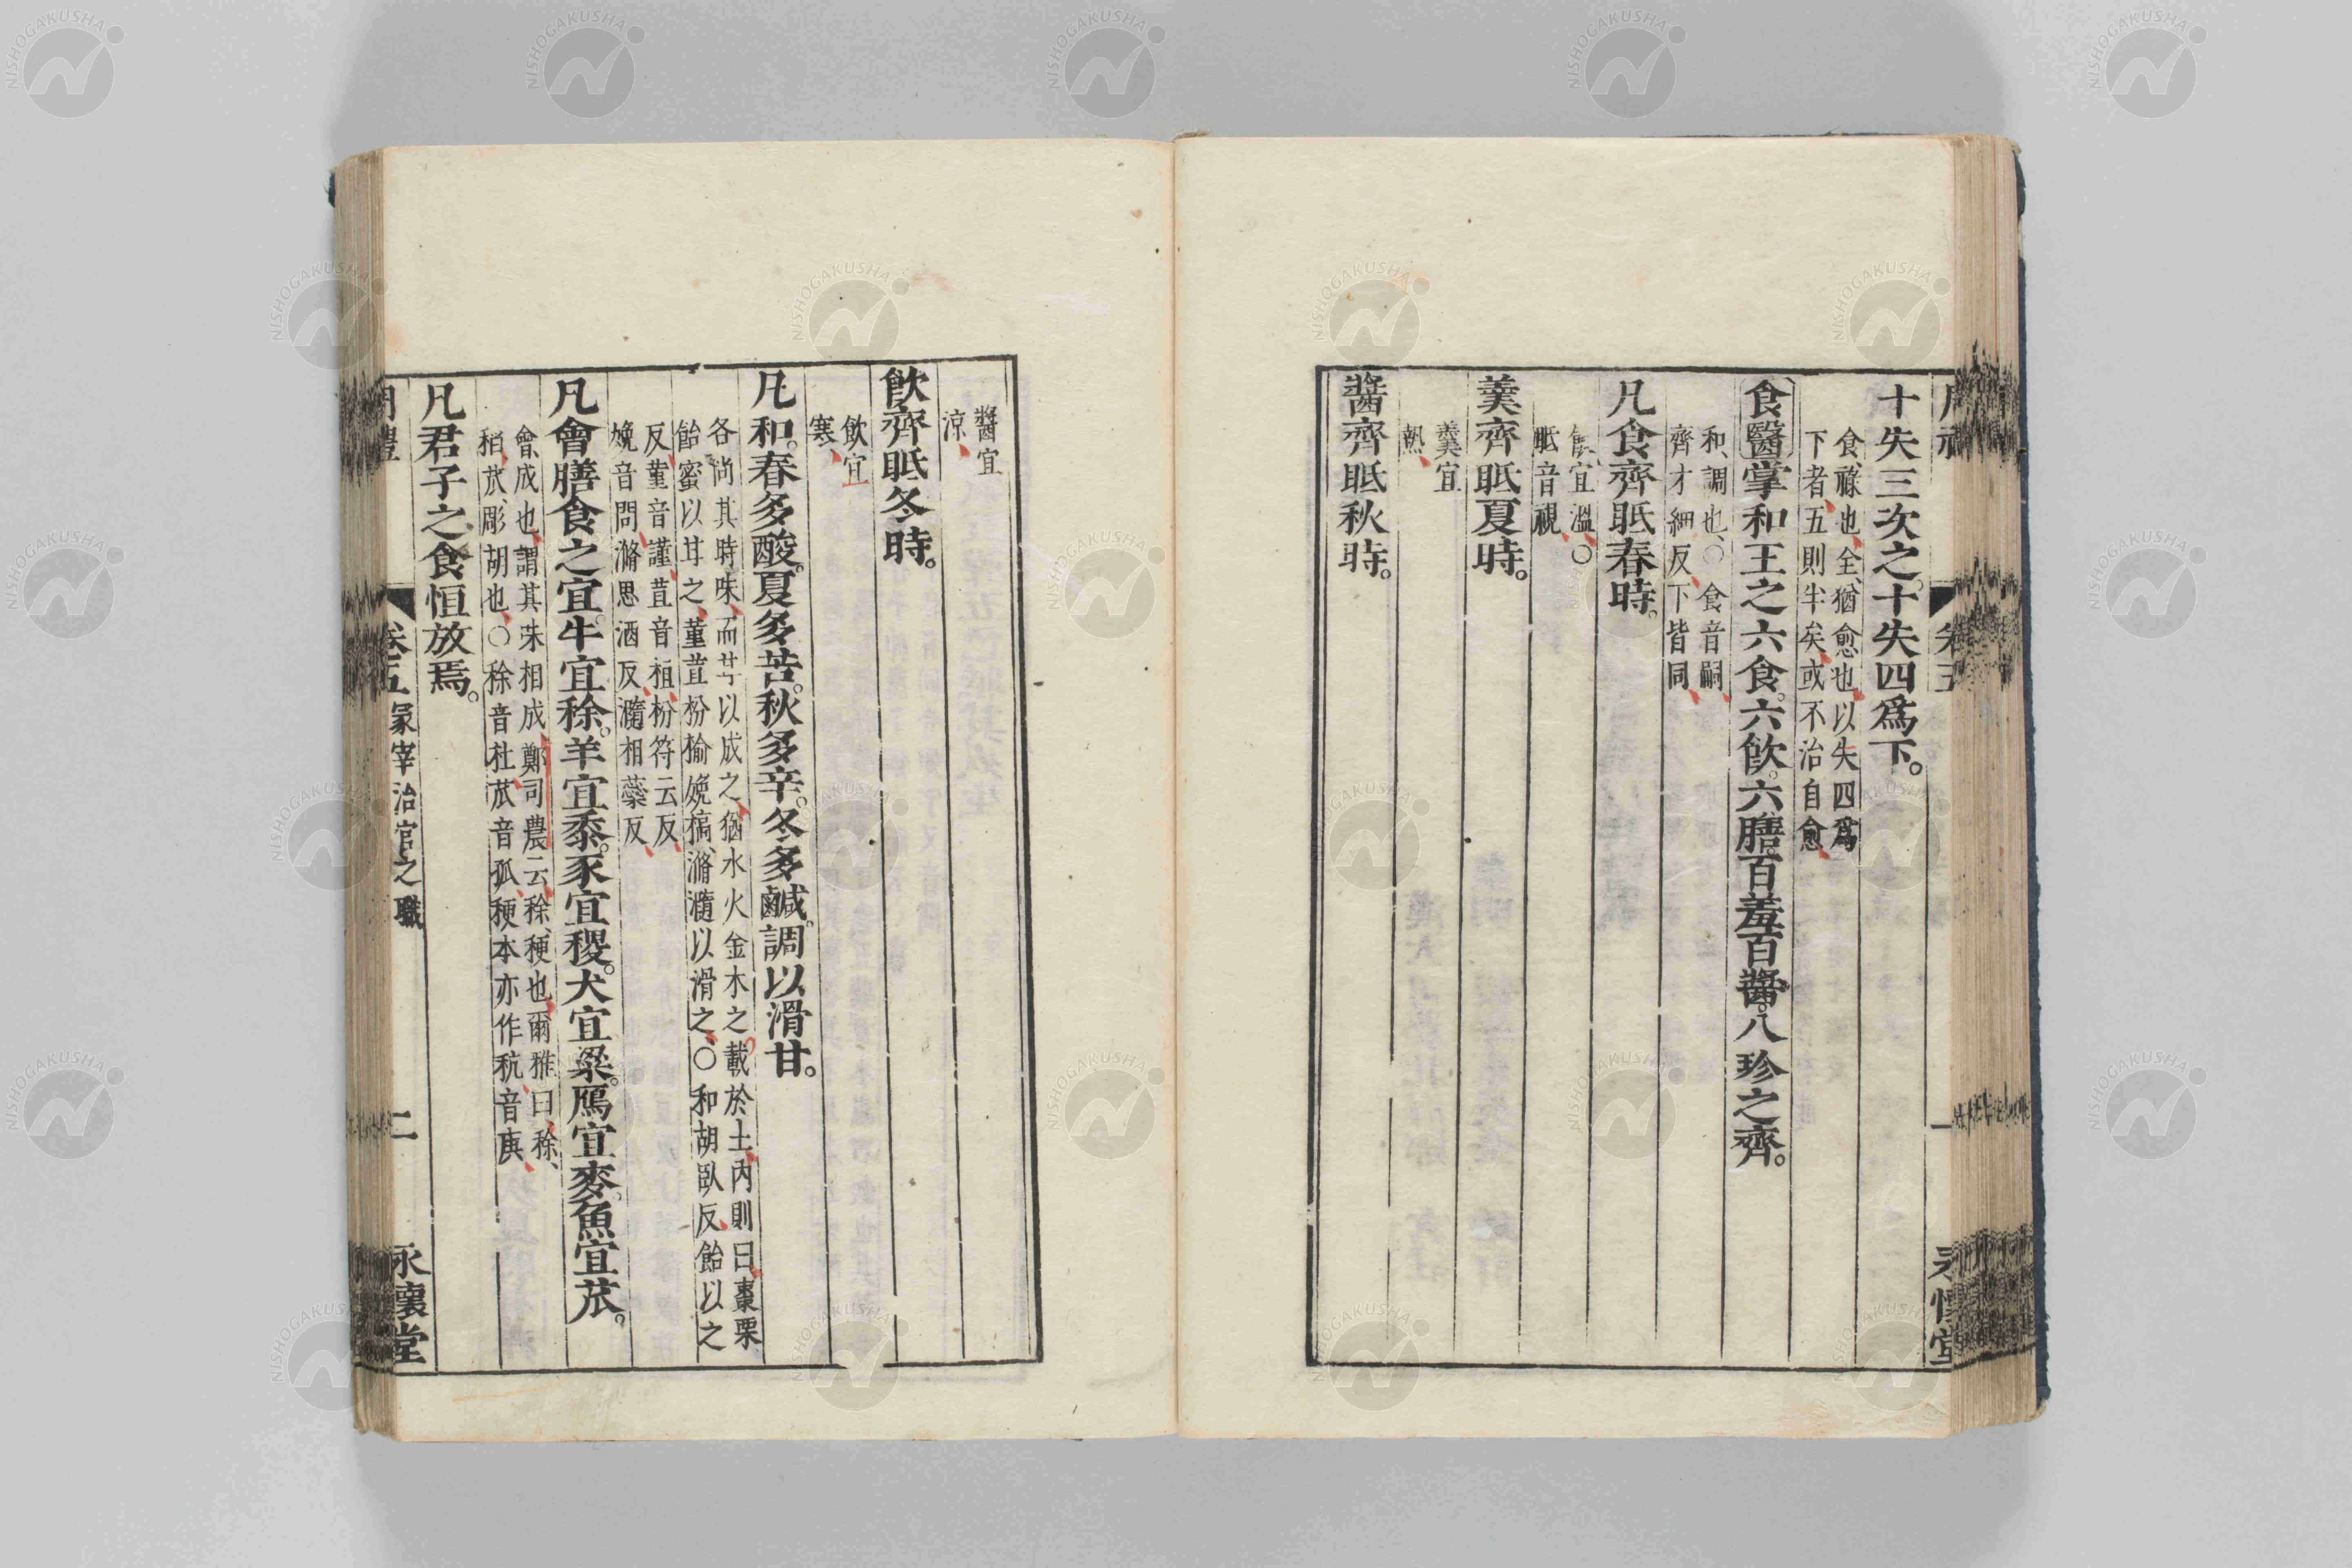 十失三次之。十失四爲下。
食、祿也、全、猶愈也、以失四爲
下者、五則半矣、或不治自愈、
食醫掌和王之六食。六飮。六膳。百羞。百醬。八珍之齊。
和、調也、〇食音嗣、
齊才細反、下皆同、
凡食齊眡春時。
飯宜溫、〇
眡音視、
羹齊眡夏時。
羹宜
熱、
醬齊眡秋時。
醬宜
涼、
飮齊眡冬時。
飮宜
寒、
凡和。春多酸。夏多苦。秋多辛。冬多鹹。調以滑甘。
各尚其時味、而甘以成之、猶水火金木之載於土、內則曰、棗栗
飴蜜以甘之、菫荁枌楡娩槁滫瀡以滑之、〇和胡臥反、飴以之
反、菫音謹、荁音桓、枌符云反、
娩音問、滫思酒反、瀡相蘂反、
凡會膳食之宜。牛宜稌。羊宜黍。豕宜稷。犬宜粱。鴈宜麥。魚宜苽。
會、成也、謂其味相成、鄭司農云、稌、稉也、爾雅曰、稌、
稻、苽、彫胡也、〇稌音杜、苽音孤、稉本亦作秔、音庚、
凡君子之食恒放焉。
卷五 冢宰治官之職 二 永懷堂